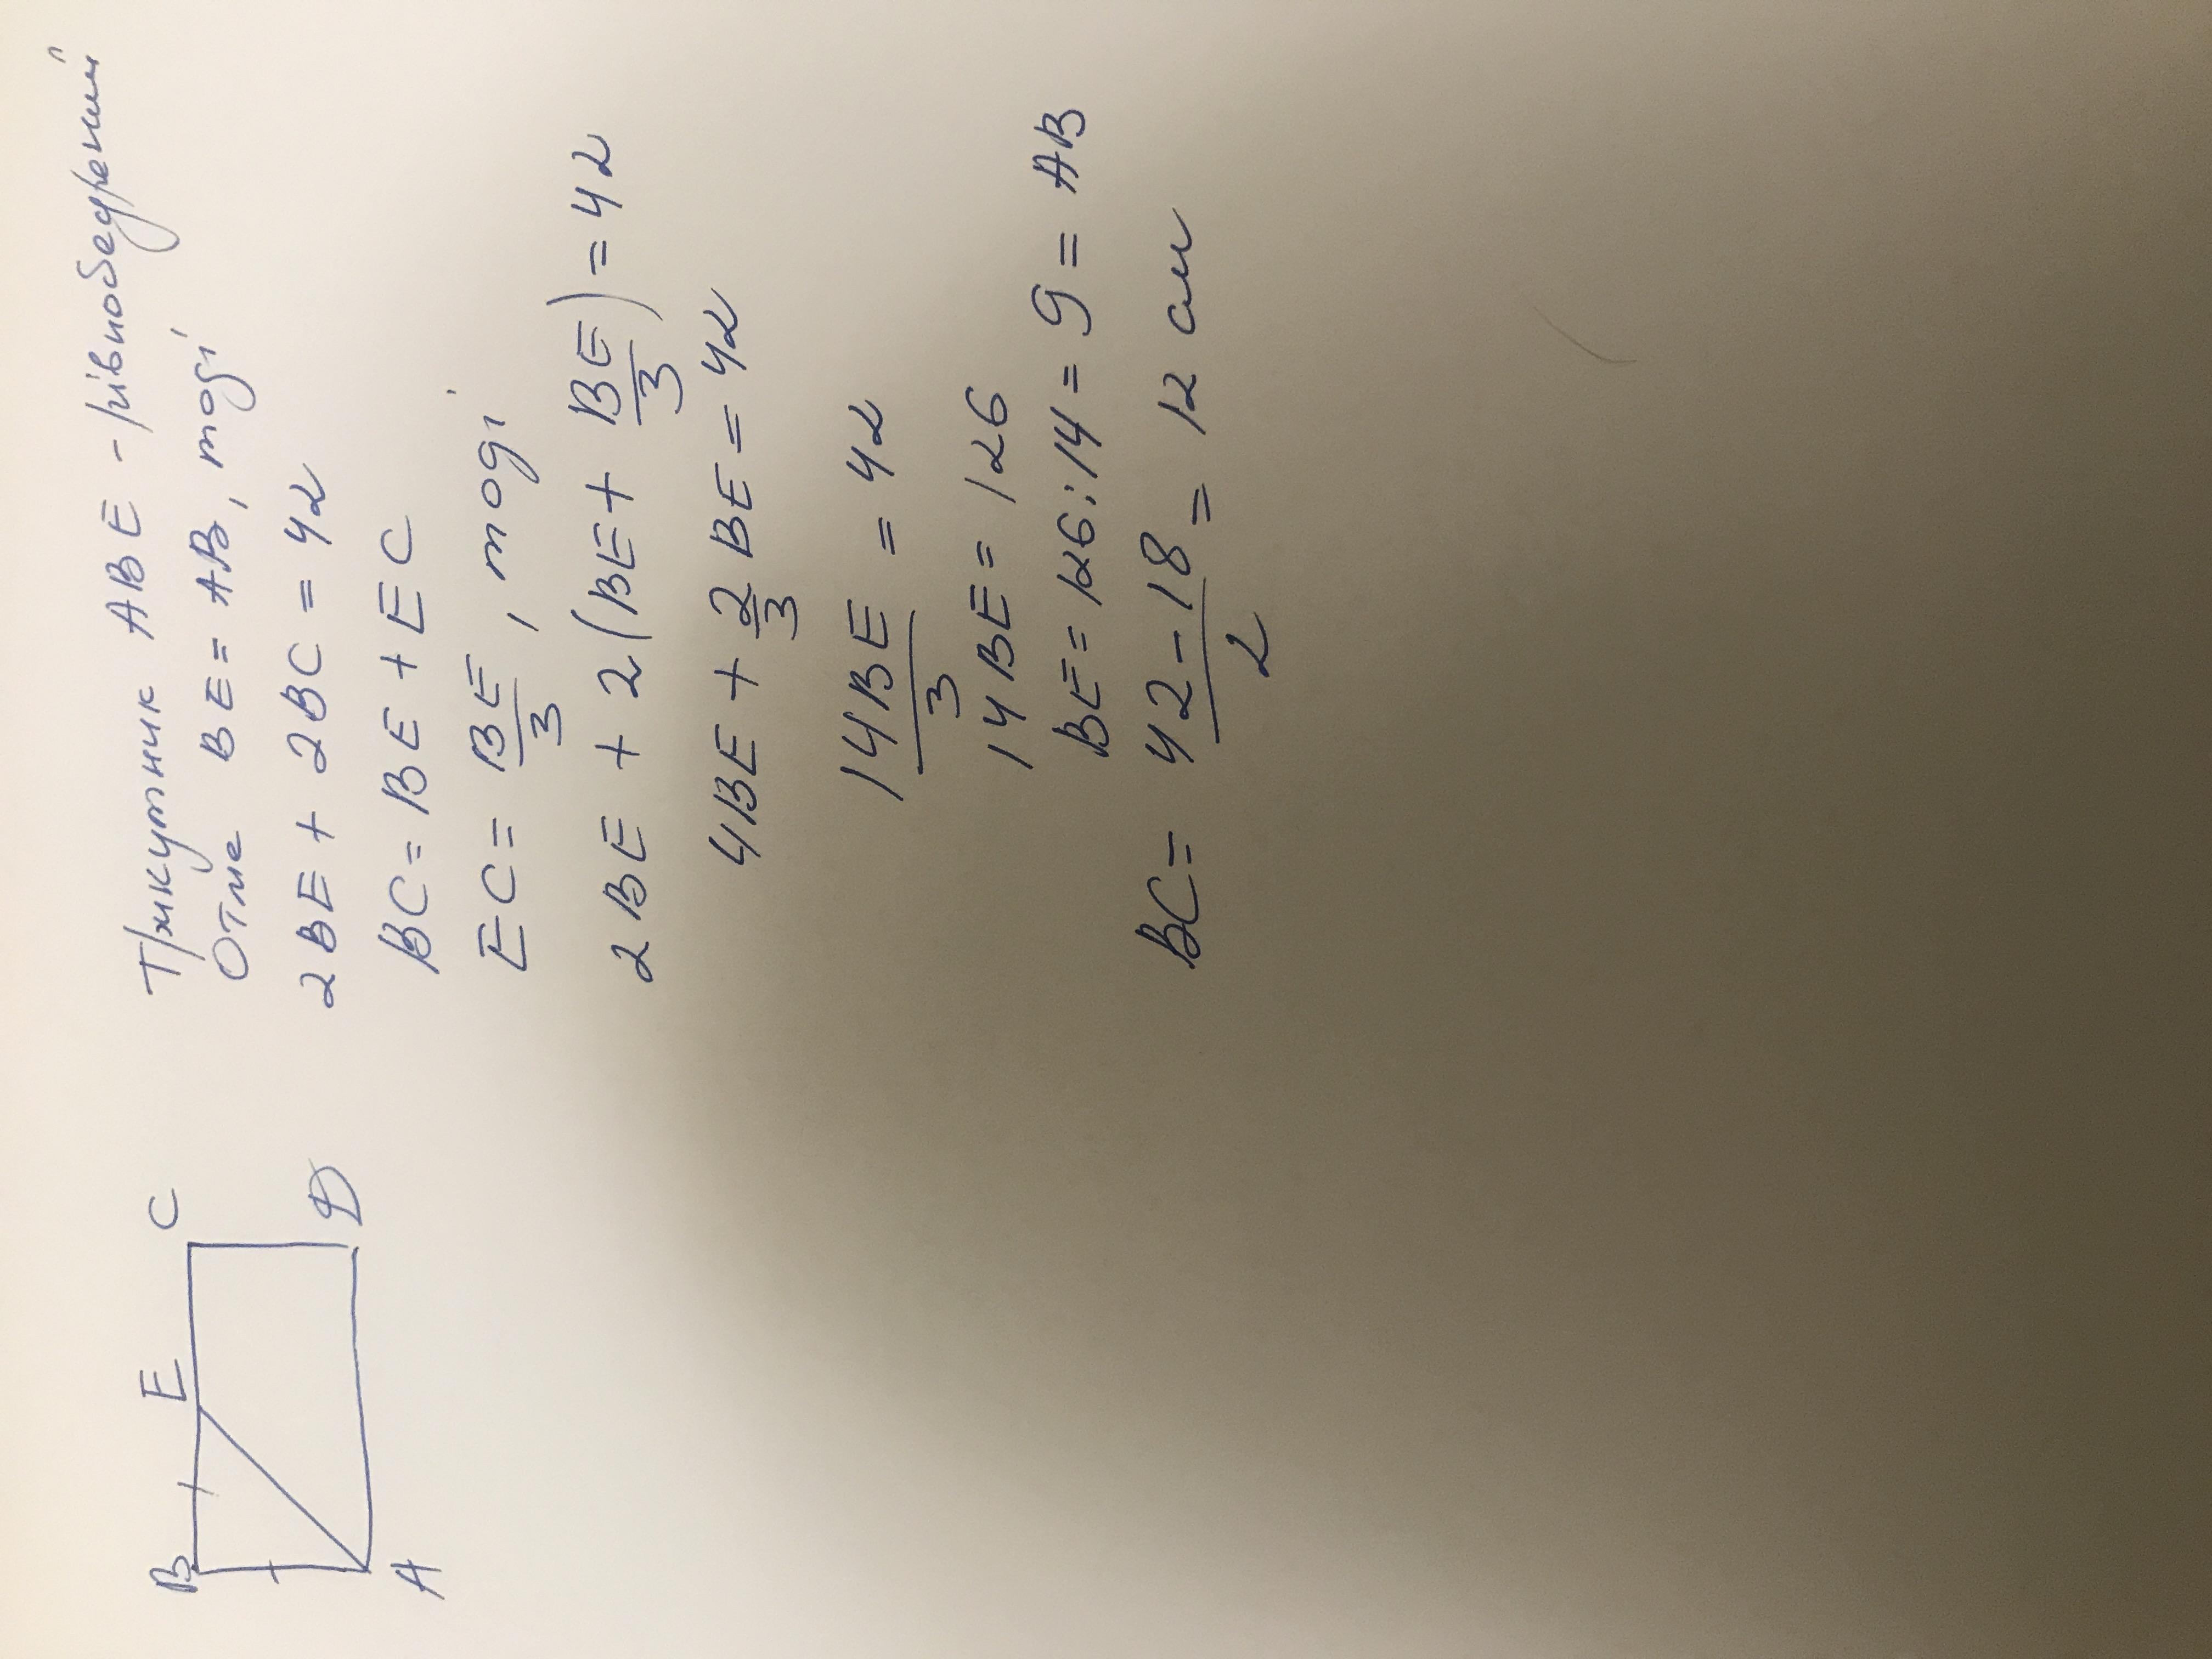 B E C
A D
Трикутник ABE - рівнобедрений
Отже BE = AB, тоді
2BE + 2BC = 42
BC = BE + EC
EC = BE/3, тоді
2BE + 2(BE + BE/3) = 42
4BE + 2/3 BE = 42
14BE/3 = 42
14BE = 126
BE = 126:14 = 9 = AB
BC = 42-18/2 = 12 см